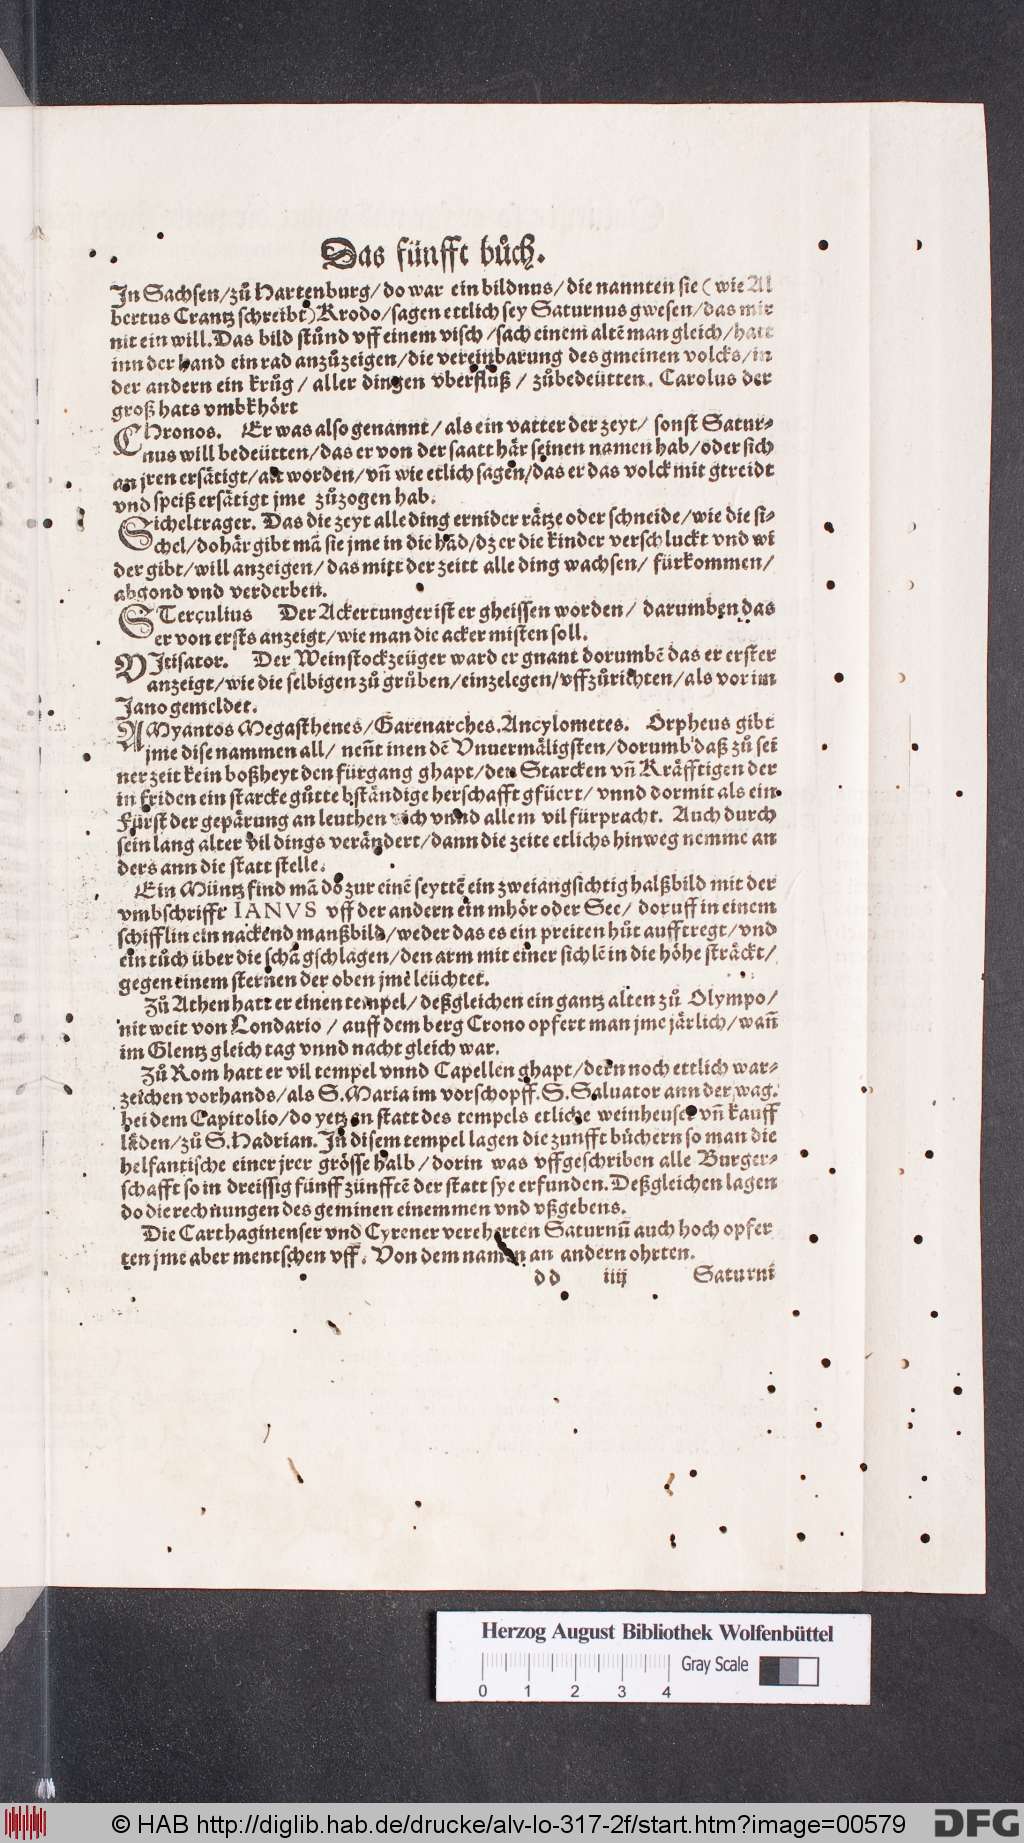 Das fünfft bůch.
In Sachsen/zů Hartenburg/do war ein bildnus/die nannten sie (wie Al
bertus Crantz schreibt) Krodo/sagen ettlich sey Saturnus gwesen/das mir
nit ein will. Das bild stůnd vff einem visch/sach einem altē man gleich/hatt
inn der hand ein rad anzůzeigen/die vereinbarung des gmeinen volcks/in
der andern ein krůg/ aller dingen vberfluß/ zůbedeütten. Carolus der
groß hats vmbkhört
CHronos. Er was also genannt/als ein vatter der zeyt/ sonst Satur-
nus will bedeütten/das er von der saatt här seinen namen hab/oder sich
an jren ersätigt/ worden/vñ wie etlich sagen/das er das volck mit gtreidt
vnd speiß ersätigt jme zůzogen hab.
Sicheltrager. Das die zeyt alle ding ernider rätze oder schneide/wie die si-
chel/dohär gibt mā sie jme in die hād/dz er die kinder verschluckt vnd wi
der gibt/will anzeigen/das mitt der zeitt alle ding wachsen/ fürkommen/
abgond vnd verderben.
STerculius Der Ackertunger ist er gheissen worden/ darumben das
er von ersts anzeigt/wie man die acker misten soll.
VItisator. Der Weinstockzeüger ward er gnant dorumbē das er erster
anzeigt/wie die selbigen zů grůben/einzelegen/vffzůrichten/als vor im
Jano gemeldet.
AMyantos Megasthenes/Garenarches. Ancylometes. Orpheus gibt
jme dise nammen all/ neñt inen dē Vnuermäligsten/dorumb daß zů sei
ner zeit kein boßheyt den fürgang ghapt/den Starcken vñ Kräfftigen der
in friden ein starcke gůtte bständige herschafft gfüert/ vnnd dormit als ein
Fürst der gepärung an leuthen vich vnnd allem vil fürpracht. Auch durch
sein lang alter vil dings verändert/dann die zeite etlichs hinweg nemme an
ders ann die statt stelle.
Ein Müntz find mā do zur einē seyttē ein zweiangsichtig halßbild mit der
vmbschrifft IANVS vff der andern ein mhör oder See/ doruff in einem
schifflin ein nackend manßbild/weder das es ein preiten hůt aufftregt/vnd
ein tůch über die schā gschlagen/den arm mit einer sichlē in die höhe sträckt/
gegen einem sternen der oben jme leüchtet.
Zů Athen hatt er einen tempel/deßgleichen ein gantz alten zů Olympo/
nit weit von Londario/ auff dem berg Crono opfert man jme järlich/wañ
im Glentz gleich tag vnnd nacht gleich war.
Zů Rom hatt er vil tempel vnnd Capellen ghapt/deren noch ettlich war-
zeichen vorhands/als S. Maria im vorschopff. S. Saluator ann der wag.
bei dem Capitolio/do yetz an statt des tempels etliche weinheuser vñ kauff
läden/zů S. Hadrian. In disem tempel lagen die zunfft büchern so man die
helfantische einer jrer grösse halb/dorin was vffgeschriben alle Burger-
schafft so in dreissig fünff zünfftē der statt sye erfunden. Deßgleichen lagen
do die rechnungen des geminen einemmen vnd vßgebens.
Die Carthaginenser vnd Cyrener vereherten Saturnū auch hoch opfer
ten jme aber mentschen vff. Von dem namen an andern ohrten.
dd iiij Saturni
Herzog August Bibliothek Wolfenbüttel
Gray Scale
0 1 2 3 4
© HAB http://diglib.hab.de/drucke/alv-lo-317-2f/start.htm?image=00579
DFG